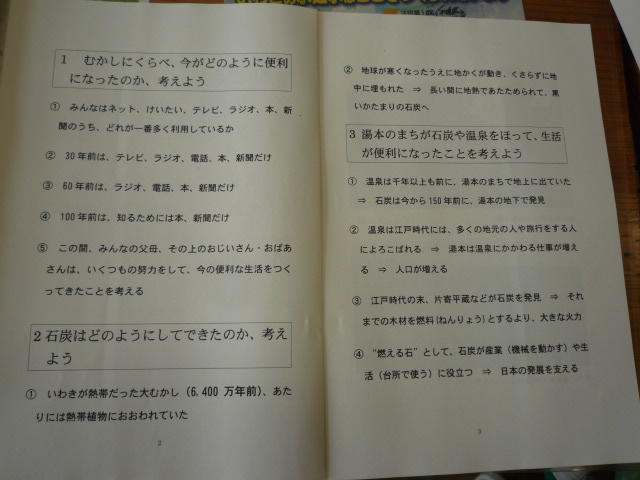 1　むかしにくらべ、今がどのように便利
になったのか、考えよう
①　みんなはネット、けいたい、テレビ、ラジオ、本、新
聞のうち、どれが一番多く利用しているか
②　30年前は、テレビ、ラジオ、電話、本、新聞だけ
③　60年前は、ラジオ、電話、本、新聞だけ
④　100年前は、知るためには本、新聞だけ
⑤　この間、みんなの父母、その上のおじいさん・おばあ
さんは、いくつもの努力をして、今の便利な生活をつく
ってきたことを考える
2石炭はどのようにしてできたのか、考え
よう
①　いわきが熱帯だった大むかし（6,400万年前）、あた
りには熱帯植物におおわれていた
2
②　地球が寒くなったうえに地かくが動き、くさらずに地
中に埋もれた　⇒　長い間に地熱であたためられて、黒
いかたまりの石炭へ
3 湯本のまちが石炭や温泉をほって、生活
が便利になったことを考えよう
①　温泉は千年以上も前に、湯本のまちで地上に出ていた
⇒　石炭は今から150年前に、湯本の地下で発見
②　温泉は江戸時代には、多くの地元の人や旅行をする人
によろこばれる　⇒　湯本は温泉にかかわる仕事が増え
る　⇒　人口が増える
③　江戸時代の末、片寄平蔵などが石炭を発見　⇒　それ
までの木材を燃料(ねんりょう)とするより、大きな火力
④　“燃える石”として、石炭が産業（機械を動かす）や生
活（台所で使う）に役立つ　⇒　日本の発展を支える
3